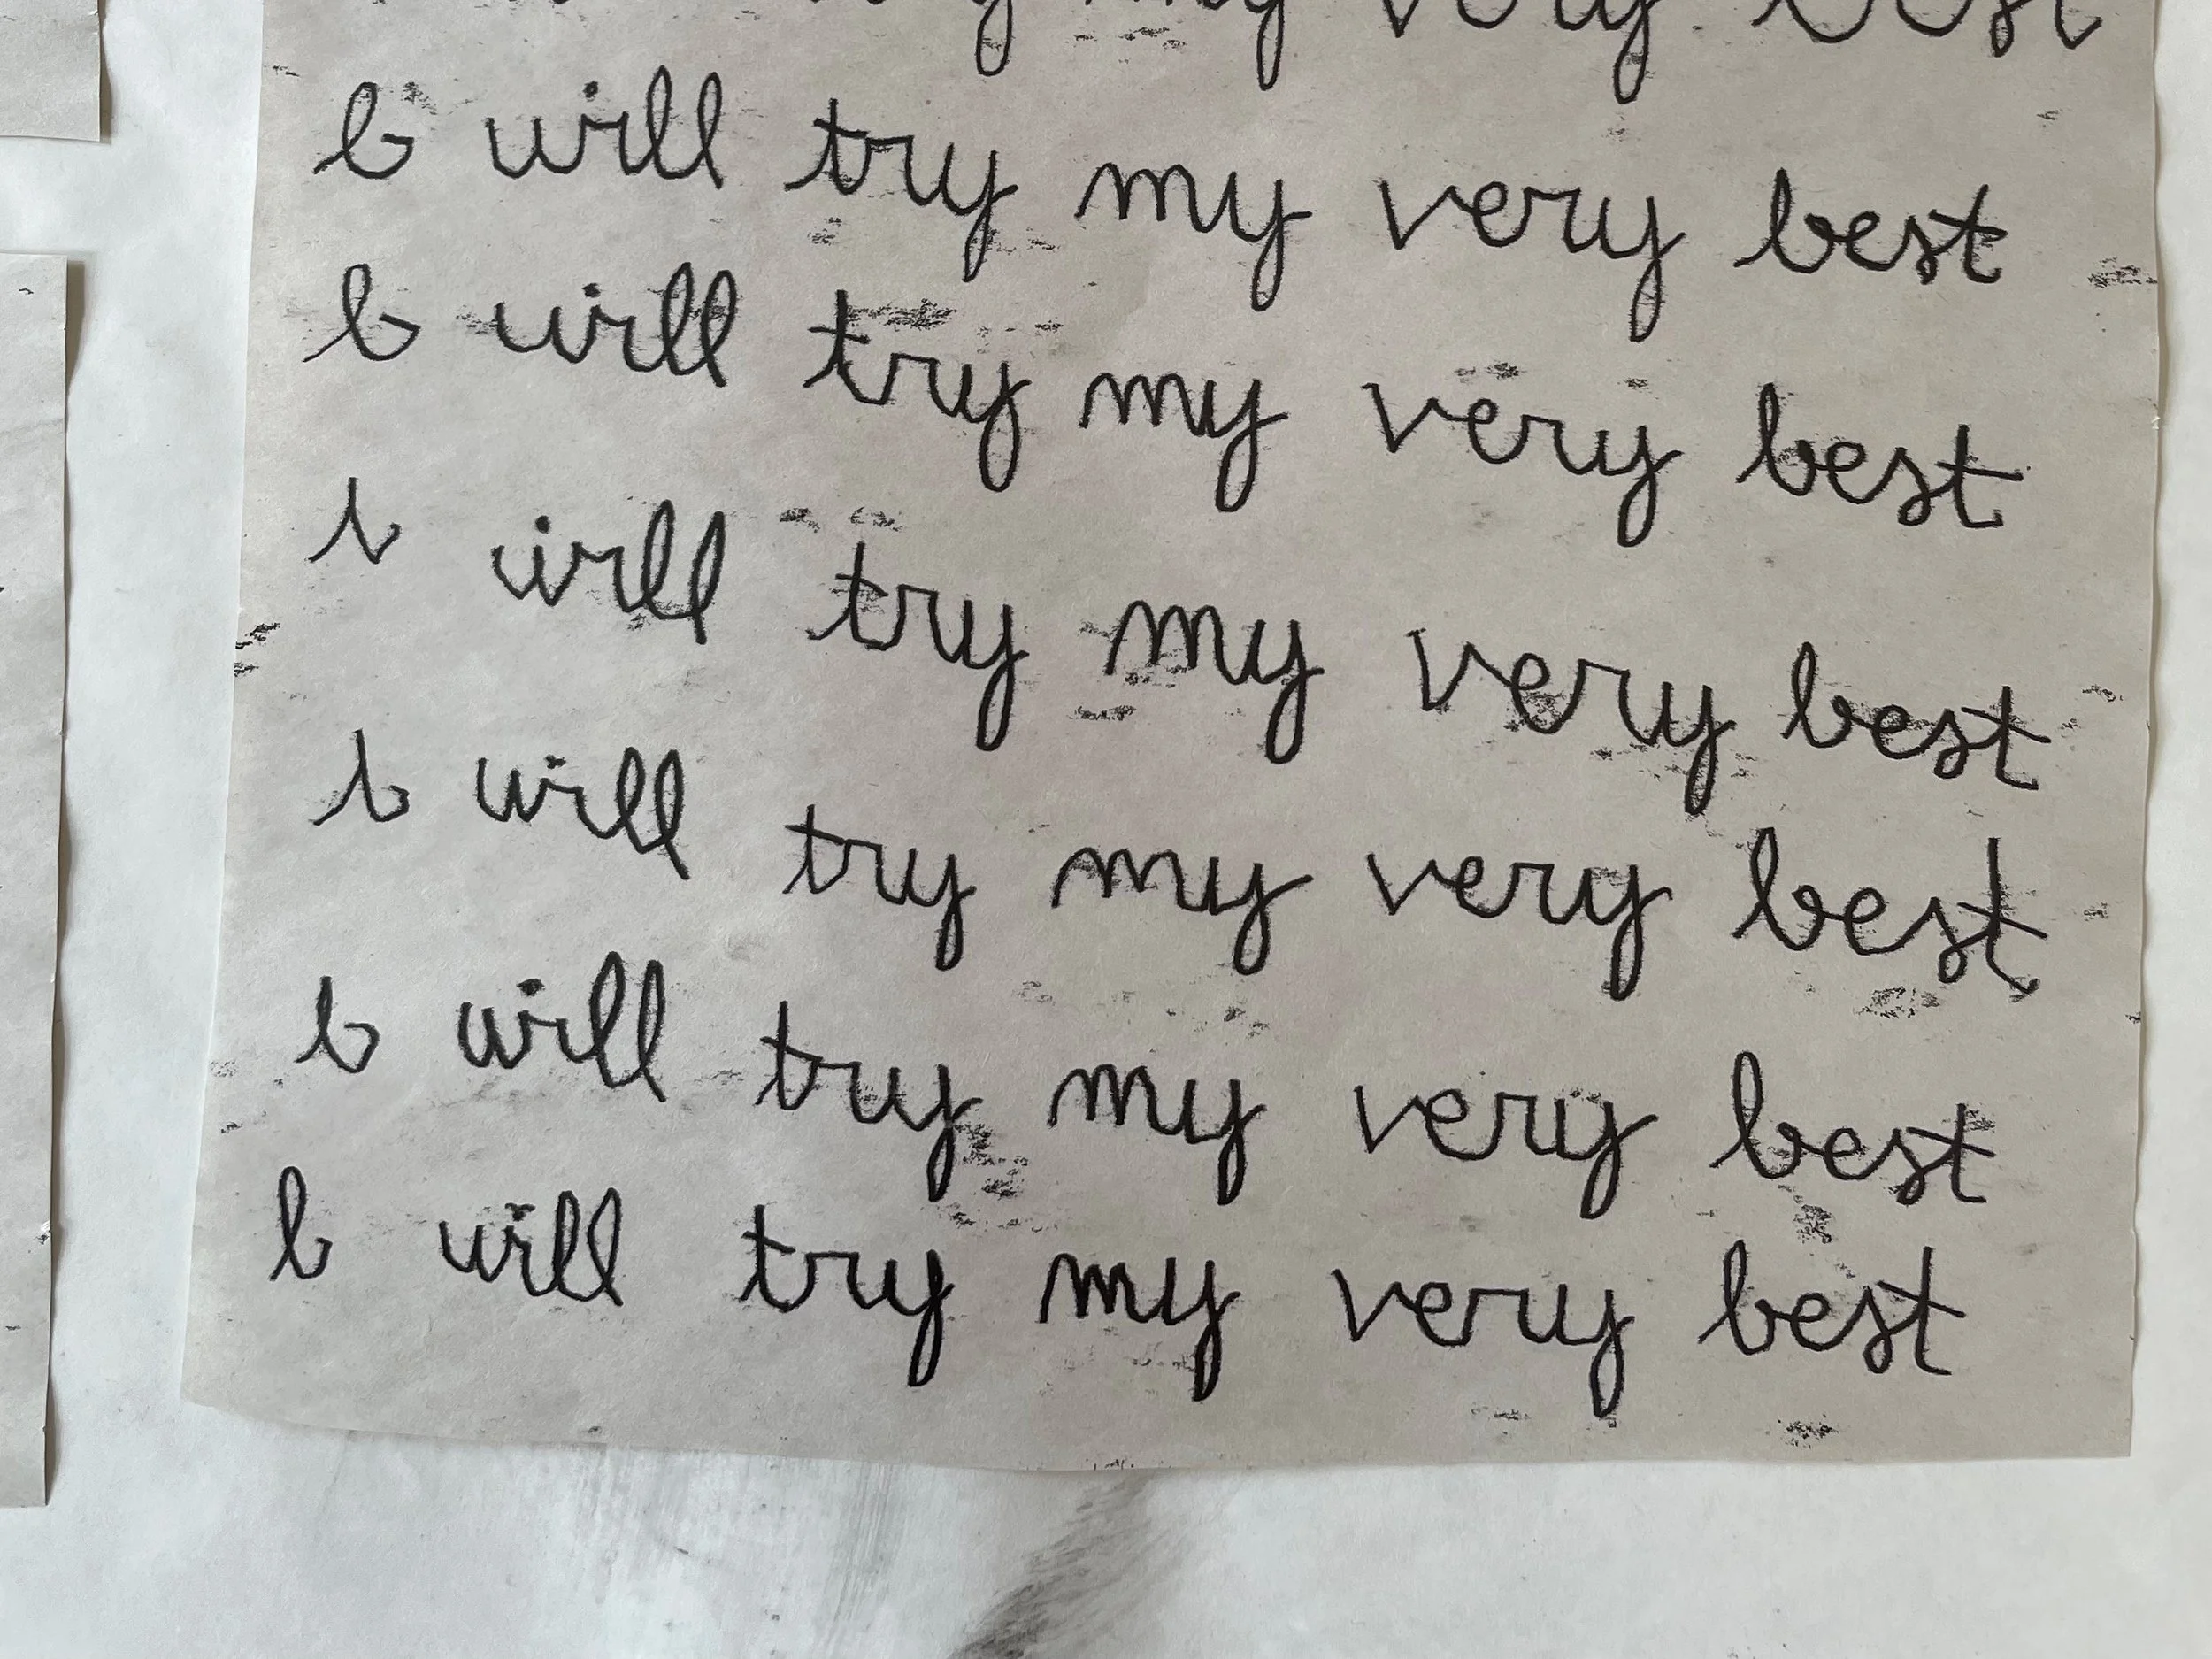 my very best
I will try my very best
I will try my very best
I will try my very best
I will try my very best
I will try my very best
I will try my very best